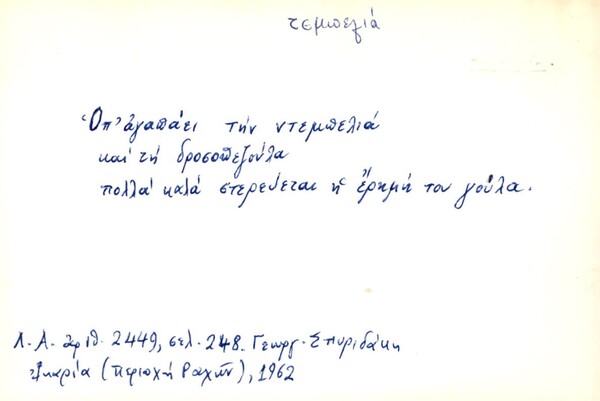 τεμπελιά
Ὁπ' ἀγαπάει τὴν ντεμπελιά
καὶ τὴ δροσοπεζούλα
πολλὰ καλὰ στερεύεται ἡ ἔρημή του γούλα.
Λ.Α. ἀριθ. 2449, σελ. 248. Γεωργ. Σπυριδάκη
Ἰκαρία (περιοχὴ Ραχῶν), 1962